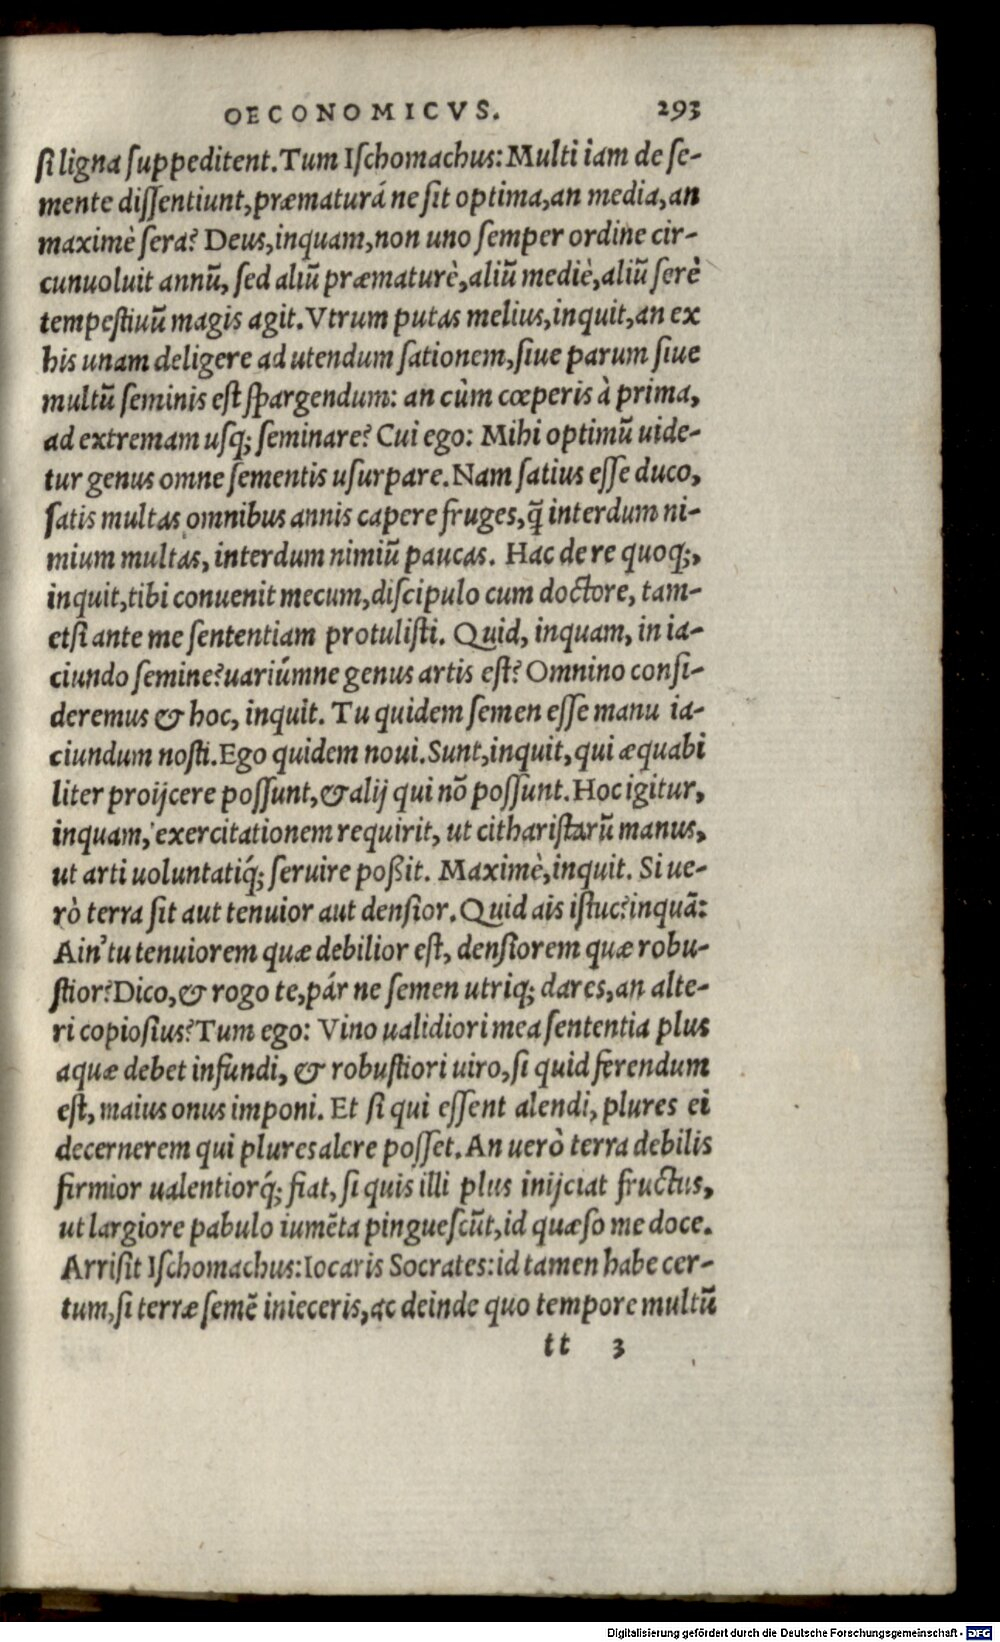 OECONOMICVS. 293
si ligna suppeditent. Tum Ischomachus: Multi iam de se-
mente dissentiunt, præmaturá ne sit optima, an media, an
maximè sera? Deus, inquam, non uno semper ordine cir-
cunuoluit annũ, sed aliũ præmaturè, aliũ mediè, aliũ serè
tempestiuũ magis agit. Vtrum putas melius, inquit, an ex
his unam deligere ad utendum sationem, siue parum siue
multũ seminis est spargendum: an cùm cœperis à prima,
ad extremam usq; seminare? Cui ego: Mihi optimũ uide-
tur genus omne sementis usurpare. Nam satius esse duco,
satis multas omnibus annis capere fruges, q̃ interdum ni-
mium multas, interdum nimiũ paucas. Hac de re quoq;,
inquit, tibi conuenit mecum, discipulo cum doctore, tam-
etsi ante me sententiam protulisti. Quid, inquam, in ia-
ciundo semine? uariúmne genus artis est? Omnino consi-
deremus & hoc, inquit. Tu quidem semen esse manu ia-
ciundum nosti. Ego quidem noui. Sunt, inquit, qui æquabi
liter proijcere possunt, & alij qui nõ possunt. Hoc igitur,
inquam, exercitationem requirit, ut citharistarũ manus,
ut arti uoluntatiq́; seruire poßit. Maximè, inquit. Si ue-
rò terra sit aut tenuior aut densior. Quid ais istuc? inquã:
Ain' tu tenuiorem quæ debilior est, densiorem quæ robu-
stior? Dico, & rogo te, pár ne semen utriq; dares, an alte-
ri copiosius? Tum ego: Vino ualidiori mea sententia plus
aquæ debet infundi, & robustiori uiro, si quid ferendum
est, maius onus imponi. Et si qui essent alendi, plures ei
decernerem qui plures alere posset. An uerò terra debilis
firmior ualentiorq́; fiat, si quis illi plus inijciat fructus,
ut largiore pabulo iumẽta pinguescũt, id quæso me doce.
Arrisit Ischomachus: Iocaris Socrates: id tamen habe cer-
tum, si terræ semẽ inieceris, ac deinde quo tempore multũ
tt 3
Digitalisierung gefördert durch die Deutsche Forschungsgemeinschaft - DFG